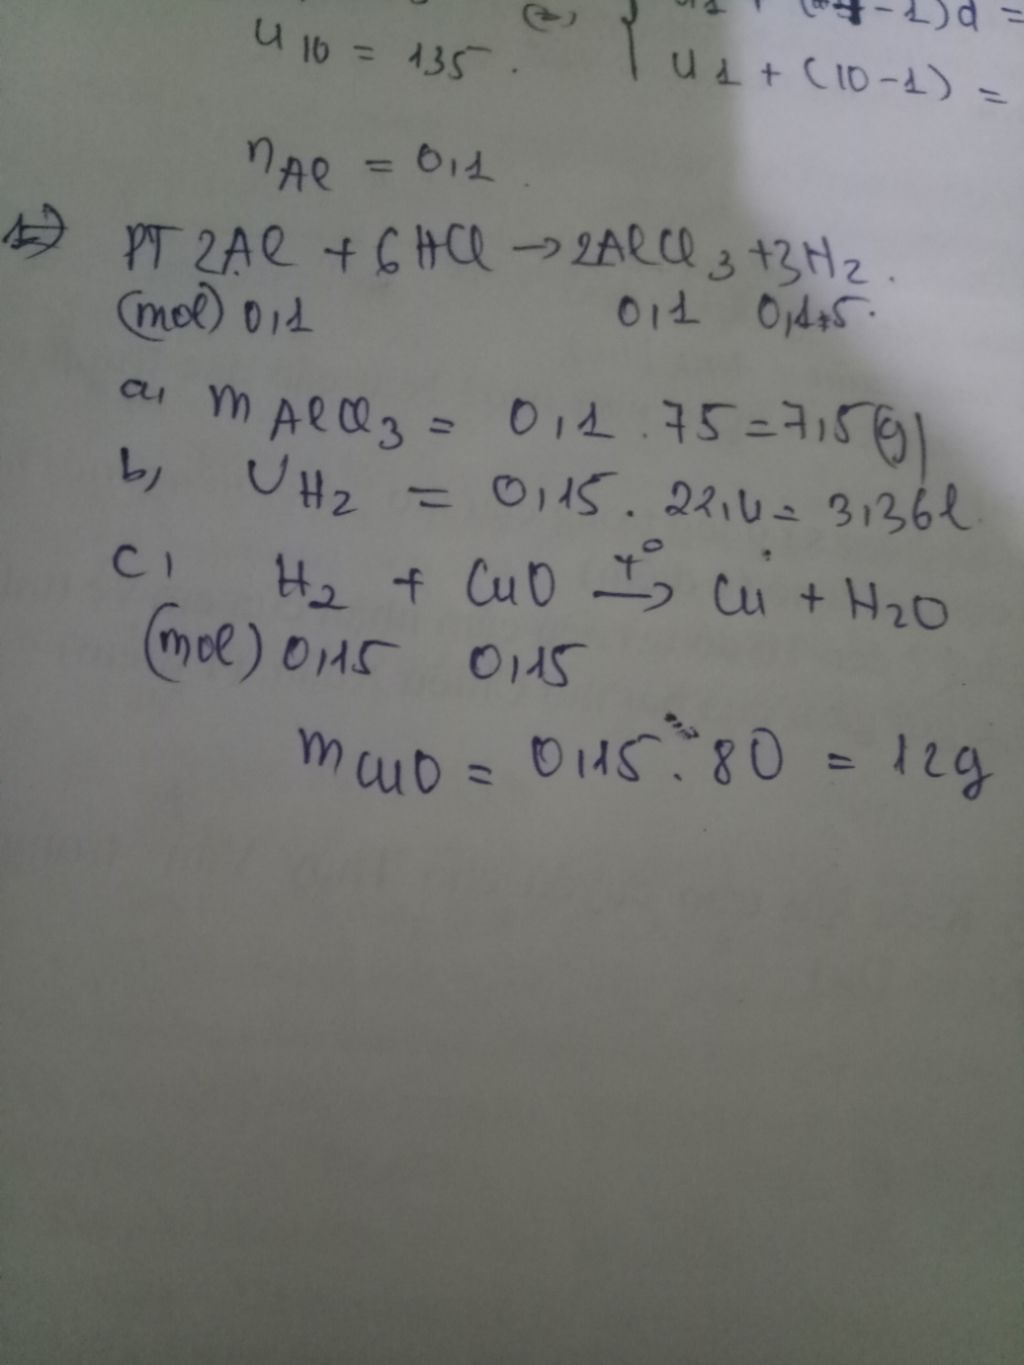 u10 = 135. (2) { u1 + ( - 1)d =
u1 + (10 - 1) =
nAl = 0,1.
1) PT 2Al + 6HCl → 2AlCl3 + 3H2.
(mol) 0,1 0,1 0,15.
a, mAlCl3 = 0,1 . 75 = 7,5(g)
b, VH2 = 0,15 . 22,4 = 3,36l
c, H2 + CuO →t° Cu + H2O
(mol) 0,15 0,15
mCuO = 0,15 . 80 = 12g